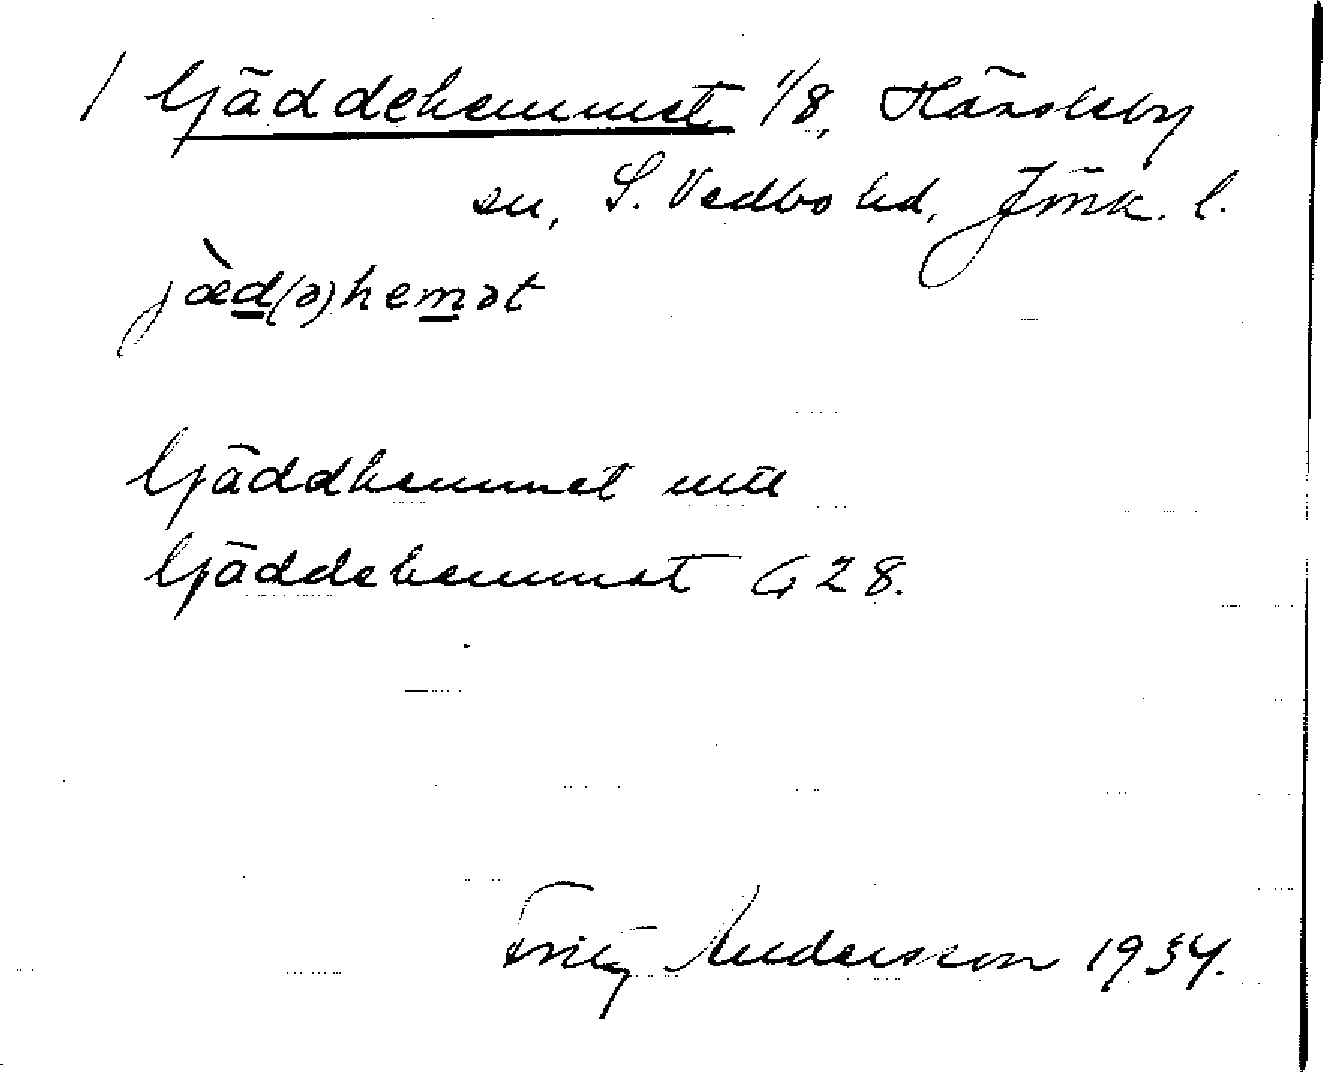 / Gäddehemmet 1/8, Hässleby
sn, S. Vedbo hd, Jönk. l.
jæ̀d(ə)hemət
Gäddhemmet
Gäddehemmet G 28.
Fritz Andersson 1934.